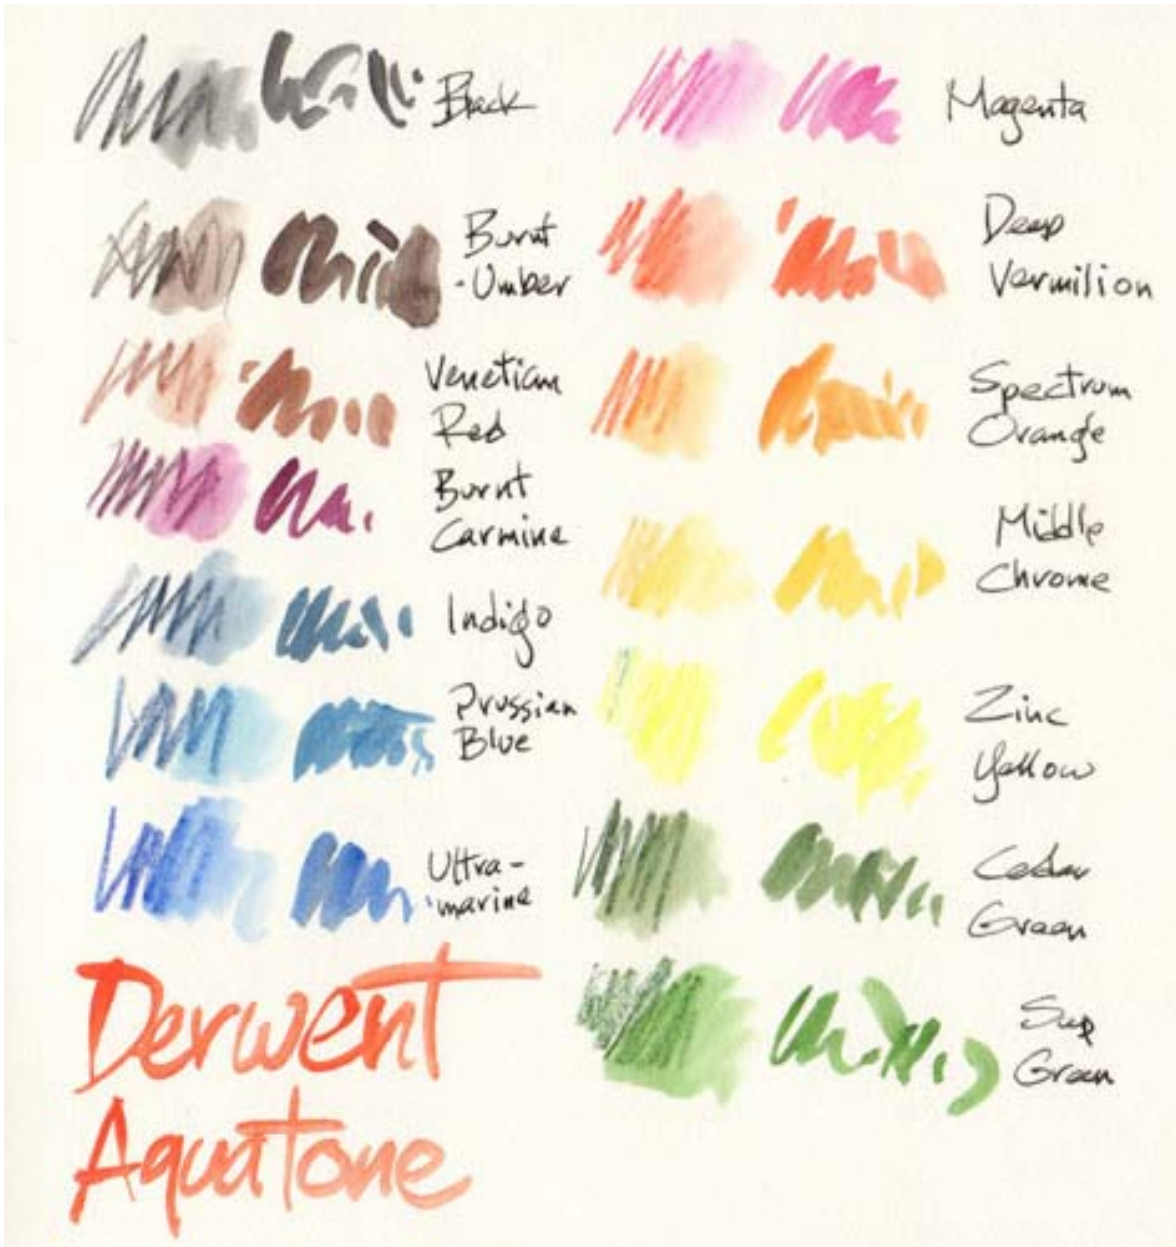 Black
Burnt
-Umber
Venetian
Red
Burnt
Carmine
Indigo
Prussian
Blue
Ultra-
marine
Derwent
Aquatone
Magenta
Deep
Vermilion
Spectrum
Orange
Middle
Chrome
Zinc
Yellow
Cedar
Green
Sap
Green